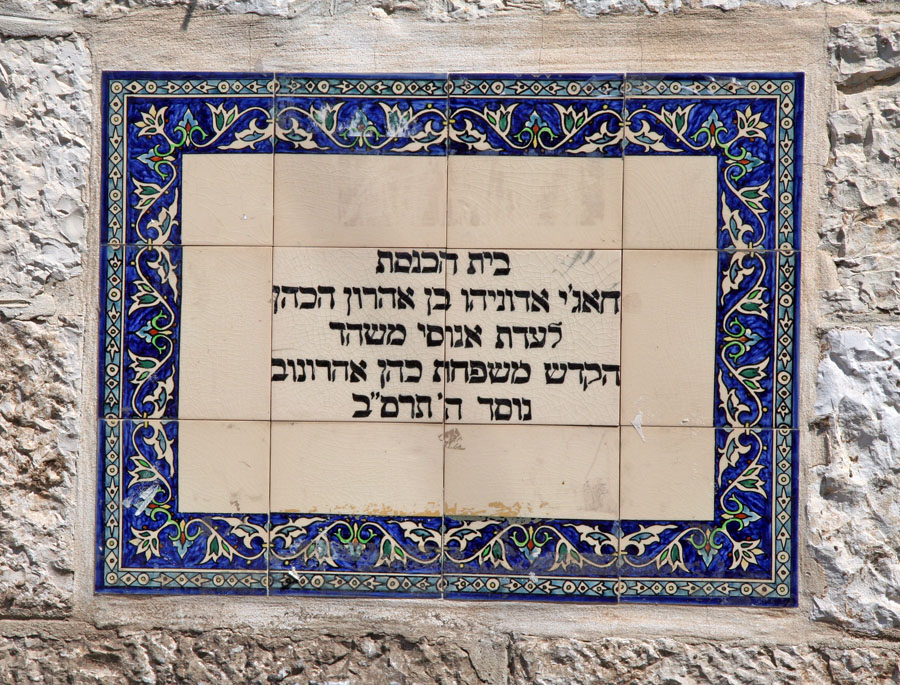 בית הכנסת
חאג'י אדוניהו בן אהרון הכהן
לעדת אנוסי משהד
הקדש משפחת כהן אהרונוב
נוסד ה'תרס"ב